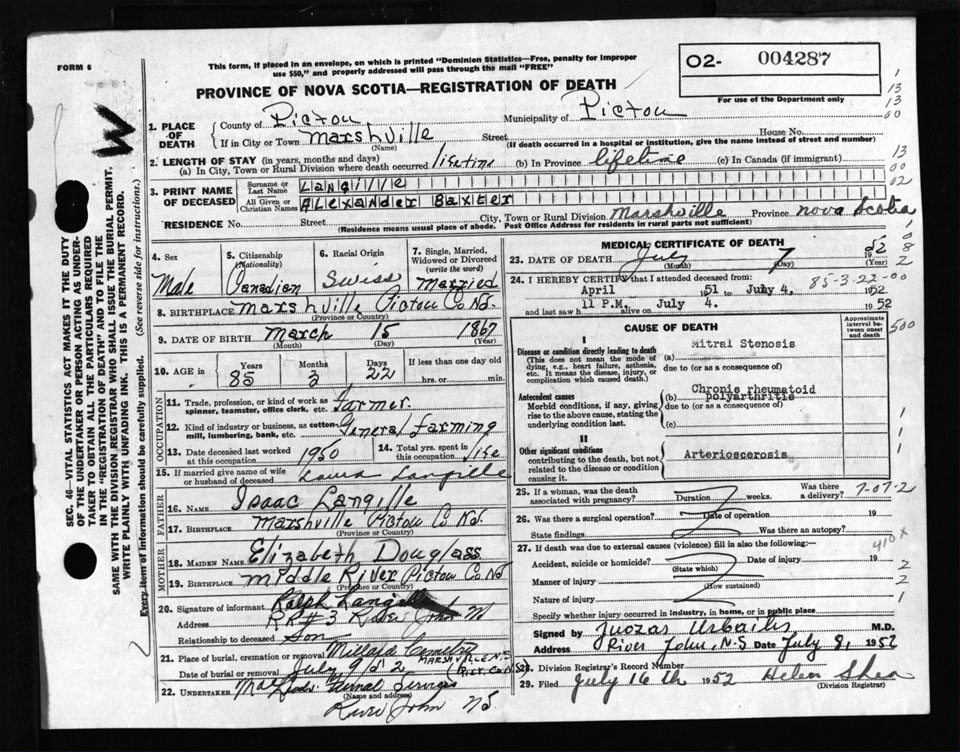 FORM 6
This form, if placed in an envelope, on which is printed "Dominion Statistics—Free, penalty for improper
use $50," and properly addressed will pass through the mail "FREE"
02- 004287
For use of the Department only
PROVINCE OF NOVA SCOTIA—REGISTRATION OF DEATH
W
1. PLACE OF DEATH
County of Pictou Municipality of Pictou
If in City or Town Marshville Street House No.
(Name) (If death occurred in a hospital or institution, give the name instead of street and number)
2. LENGTH OF STAY (in years, months and days)
(a) In City, Town or Rural Division where death occurred lifetime (b) In Province lifetime (c) In Canada (if immigrant)
3. PRINT NAME OF DECEASED
Surname or Last Name Langille
All Given or Christian Names Alexander Baxter
RESIDENCE No. Street City, Town or Rural Division Marshville Province Nova Scotia
(Residence means usual place of abode. Post Office Address for residents in rural parts not sufficient)
4. Sex Male
5. Citizenship (Nationality) Canadian
6. Racial Origin Swiss
7. Single, Married, Widowed or Divorced (write the word) Married
8. BIRTHPLACE Marshville Pictou Co NS.
(Province or Country)
9. DATE OF BIRTH March 15 1867
(Month) (Day) (Year)
10. AGE in Years 85 Months 3 Days 22 If less than one day old hrs. or min.
OCCUPATION
11. Trade, profession, or kind of work as spinner, teamster, office clerk, etc. Farmer.
12. Kind of industry or business, as cotton-mill, lumbering, bank, etc. General Farming
13. Date deceased last worked at this occupation 1950
14. Total yrs. spent in this occupation life
15. If married give name of wife or husband of deceased Langille
FATHER
16. NAME Isaac Langille
17. BIRTHPLACE Marshville Pictou Co NS.
(Province or Country)
MOTHER
18. MAIDEN NAME Elizabeth Douglass
19. BIRTHPLACE Middle River Pictou Co NS
(Province or Country)
20. Signature of informant Ralph Langille
Address RR#3 River John NS
Relationship to deceased Son
21. Place of burial, cremation or removal Millard Cemetry
MARSHVILLE N.S.
Date of burial or removal July 9 52 PICT. CO N.S.
22. UNDERTAKER Funeral Services
(Name and address)
River John NS
MEDICAL CERTIFICATE OF DEATH
23. DATE OF DEATH July 7 1952
(Month) (Day) (Year)
85-3-22-00
24. I HEREBY CERTIFY that I attended deceased from:
April 1951 to July 4, 1952
11 P.M. July 4. 1952
and last saw h alive on
CAUSE OF DEATH
Approximate interval between onset and death
I
Disease or condition directly leading to death (a) Mitral Stenosis
(This does not mean the mode of dying, e.g., heart failure, asthenia, etc. It means the disease, injury, or complication which caused death.)
due to (or as a consequence of)
Antecedent causes (b) Chronis rheumatoid polyarthritis
Morbid conditions, if any, giving rise to the above cause, stating the underlying condition last.
due to (or as a consequence of)
(c)
II
Other significant conditions Arterioscerosis
contributing to the death, but not related to the disease or condition causing it.
25. If a woman, was the death associated with pregnancy? Duration weeks. Was there a delivery?
7-07-2
26. Was there a surgical operation? Date of operation 19
State findings Was there an autopsy?
27. If death was due to external causes (violence) fill in also the following:—
410 x
Accident, suicide or homicide? Date of injury 19
(State which)
Manner of injury
(How sustained)
Nature of injury
Specify whether injury occurred in industry, in home, or in public place
Signed by Juozas Urbaitis M.D.
Address River John, N-S Date July 8, 1952
28. Division Registrar's Record Number
29. Filed July 16th 1952 Helen Shea
(Division Registrar)
500
SEC. 46—VITAL STATISTICS ACT MAKES IT THE DUTY
OF THE UNDERTAKER OR PERSON ACTING AS UNDER-
TAKER TO OBTAIN ALL THE PARTICULARS REQUIRED
IN THE "REGISTRATION OF DEATH" AND TO FILE THE
SAME WITH THE DIVISION REGISTRAR WHO SHALL ISSUE THE BURIAL PERMIT.
WRITE PLAINLY WITH UNFADING INK. THIS IS A PERMANENT RECORD.
Every item of information should be carefully supplied. (See reverse side for instructions.)